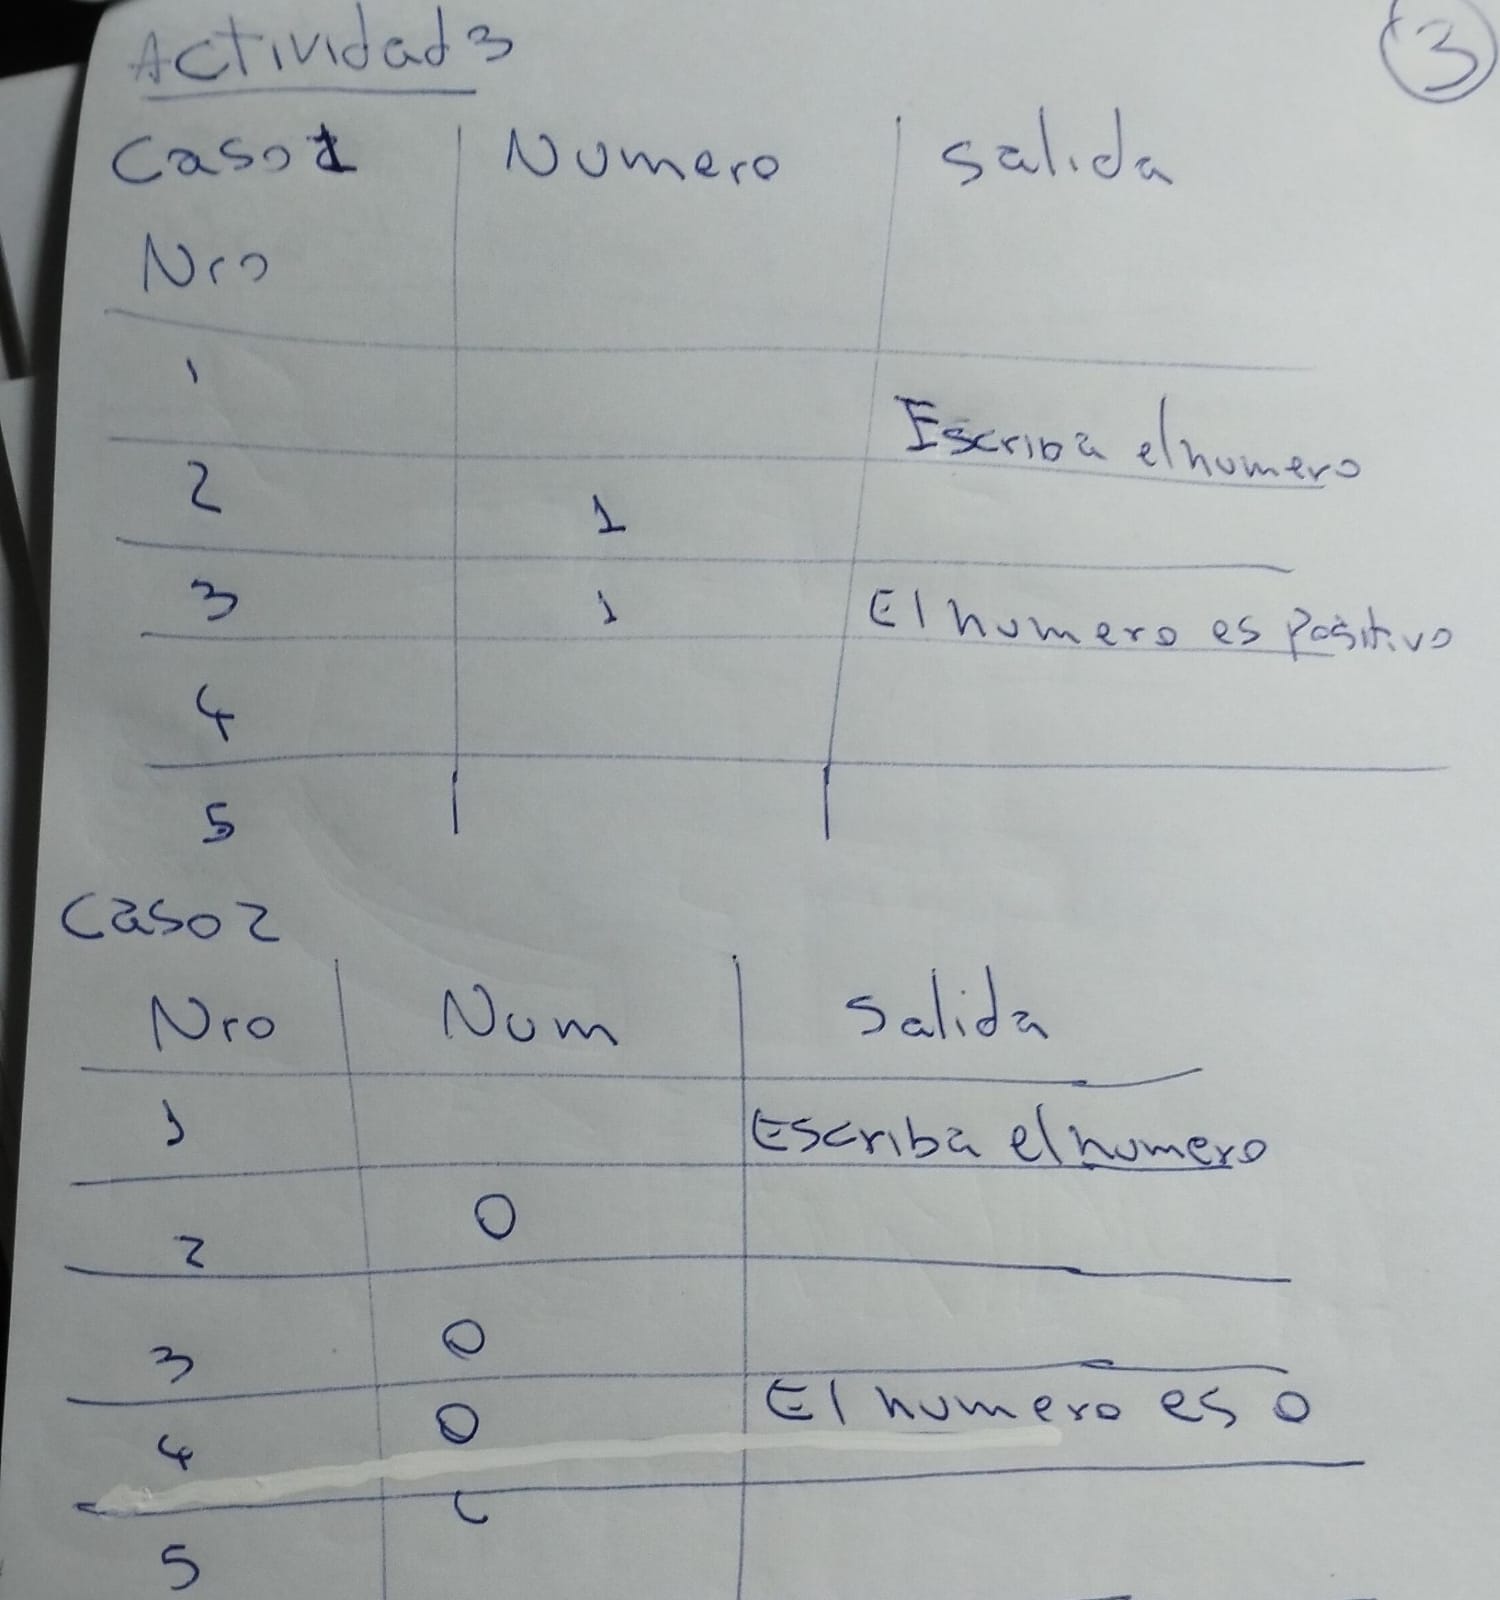 Actividad 3
3
Caso 1 Numero Salida
Nro
1
Escriba el numero
2 1
3 1 El numero es Positivo
4
5
Caso 2
Nro Num Salida
1 Escriba el numero
2 0
3 0
4 0 El numero es 0
5